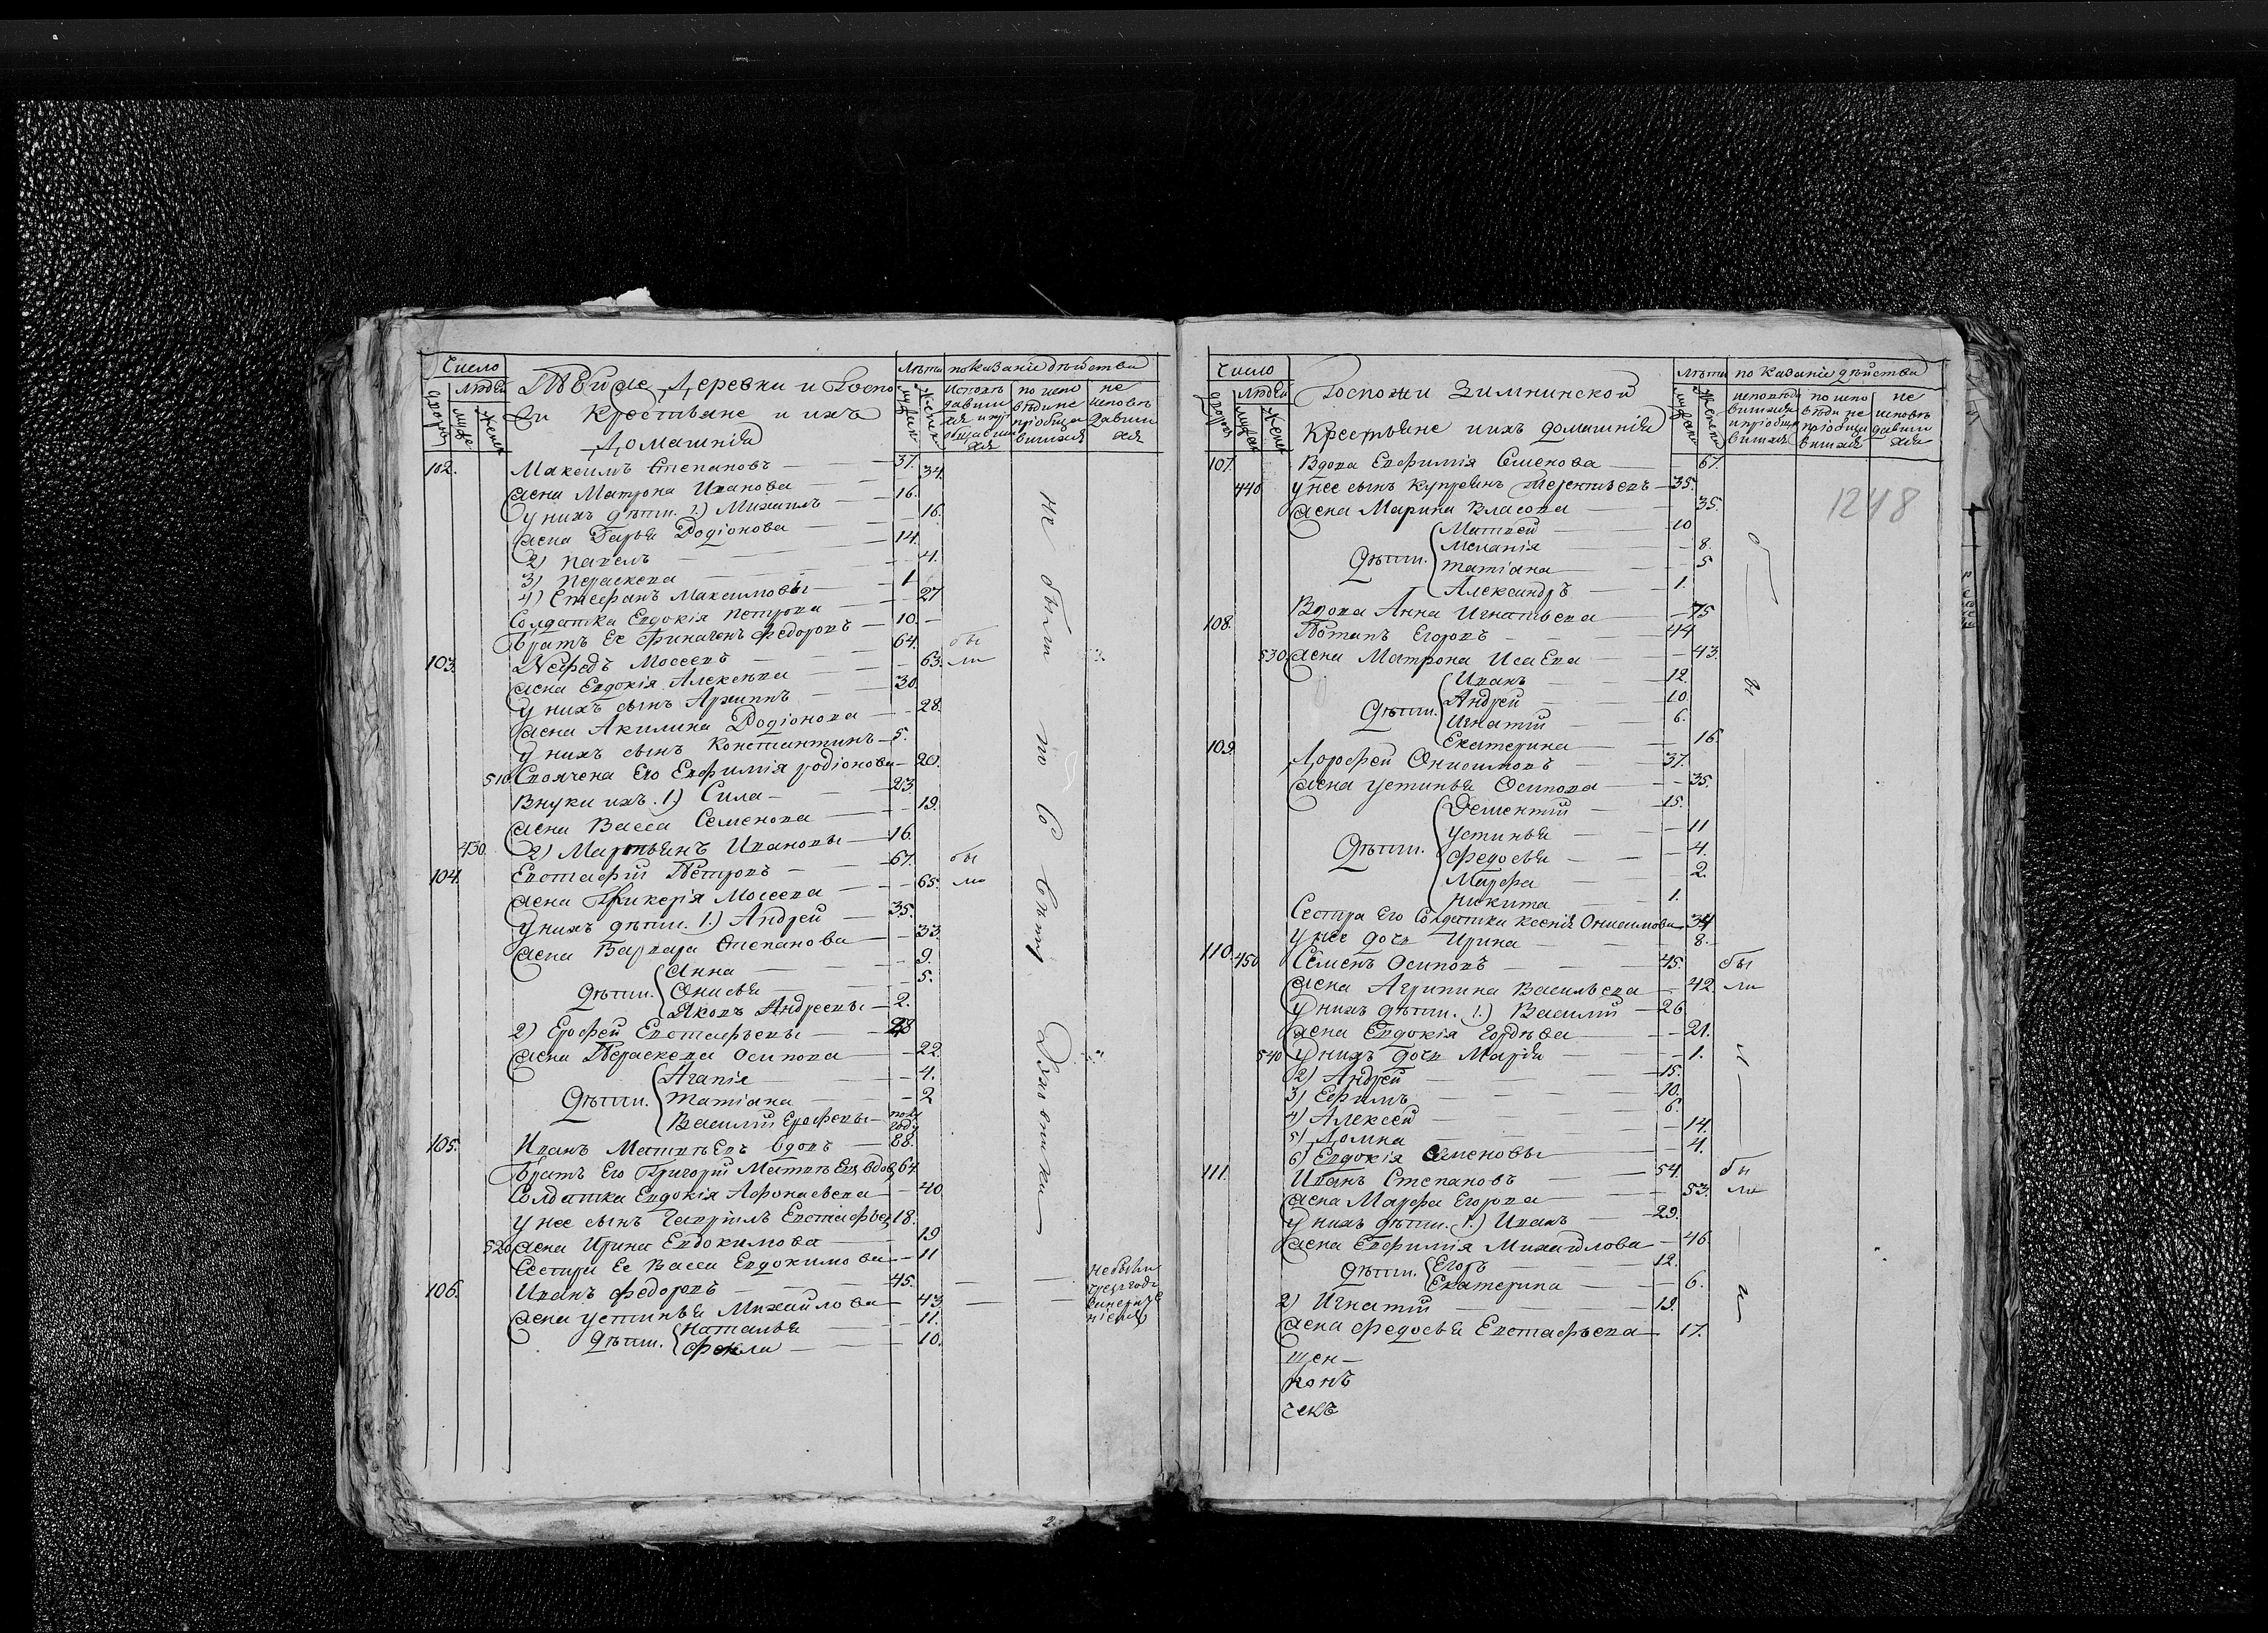 Число
Людей
Дворовъ
Муже
Женск
Тѣиже Деревни и Госпо
жи Крестьяне и ихъ
Домашнія
Лѣта
мужеск
Женск
показаніе дѣйства
Исповѣ
давши
ся и прі
общавши
ся
по испо
вѣди не
пріобща
вшихся
не
исповѣ
давши
хся
102. Максимъ Степановъ 37.
жена Матрона Иванова 34.
У нихъ дѣти. 1.) Михаилъ 16.
жена Дарья Родіонова 16.
2) Павелъ 14.
3) Параскева 4.
4) Стефанъ Максимовы 1
Солдатка Евдокія Петрова 27
Братъ Ее Финагенъ Федоровъ 10.
103. Нефедъ Моѵсеевъ 64. бы
жена Евдокія Алексѣева 63. ли
У нихъ сынъ Архиппъ 30.
жена Акилина Родіонова 28.
У нихъ сынъ Константинъ 5.
510 Своячена Его Евфимія Родіонова 20.
Внуки ихъ. 1.) Сила 23
жена Васса Семенова 19.
430. 2) Мартьянъ Ивановы 16.
104. Евстафій Петровъ 67. бы
жена Гликерія Моѵсеева 65. ли
У нихъ дѣти. 1.) Андрей 35.
жена Варвара Степанова 33.
Дѣти. Анна 9.
Онисья 5.
Яковъ Андреевы 2.
2) Ерофей Евстафьевы 28
жена Параскева Осипова 22.
Дѣти. Агапія 4.
Татіана 2
Василій Ерофеевы полу
году
105. Иванъ Матвѣевъ вдовъ 88.
Братъ Его Григорій Матвѣевъ вдовъ 64
Солдатка Евдокія Афонасьева 40
У нее сынъ Гавріилъ Евстафьев 18.
520 жена Ирина Евдокимова 19
Сестра Ее Васса Евдокимова 11
106. Иванъ Федоровъ 45.
жена Устинья Михайлова 43.
Дѣти. Наталья 11.
Фекла 10.
не были по
небыли
Число
Людей
Дворовъ
Мужеск
Женск
Госпожи Зимнинской
Крестьяне и ихъ домашнія
Лѣта
мужеск
Женск
показаніе дѣйства
исповѣда
вшихся
и пріобща
вшихся
по испо
вѣди не
пріобща
вшихся
не
исповѣ
давши
хся
1248
107. Вдова Евфимія Семенова 67.
440 У нее сынъ Купреянъ Терентьевъ 35.
жена Марина Власова 35.
Дѣти. Матвей 10
Меланія 8.
Татіана 5
Александръ 1.
Вдова Анна Игнатьева 75
108. Потапъ Егоровъ 44
530. жена Матрона Исаева 43.
Дѣти. Иванъ 12.
Андрей 10.
Игнатій 6.
Екатерина 16.
109. Дорофей Онисимовъ 37.
жена Устинья Осипова 35.
Дѣти. Дементій 15.
Устинья 11
Федосья 4.
Марфа 2.
Никита 1.
Сестра Его Солдатка Ксенія Онисимова 34
У нее дочь Ирина 8.
110. 450 Семенъ Осиповъ 45. бы
жена Агрипина Васильева 42. ли
У нихъ дѣти. 1.) Василій 26
жена Евдокія Гордѣева 21.
540 У нихъ дочь Марія 1.
2) Андрей 15.
3) Ефимъ 10.
4) Алексей 6.
5) Домна 14.
6) Евдокія Семеновы 4.
111. Иванъ Степановъ 54. бы
жена Марфа Егорова 53. ли
У нихъ дѣти. 1.) Иванъ 29.
жена Евфимія Михайлова 46
Дѣти. Егоръ 12.
Екатерина 6.
2) Игнатій 19.
жена Федосья Евстафьева 17.
щен-